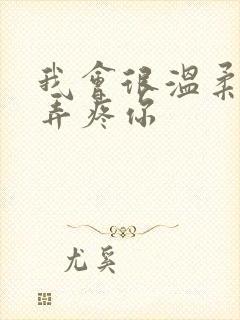 我會很溫柔
弄疼你
尤奚